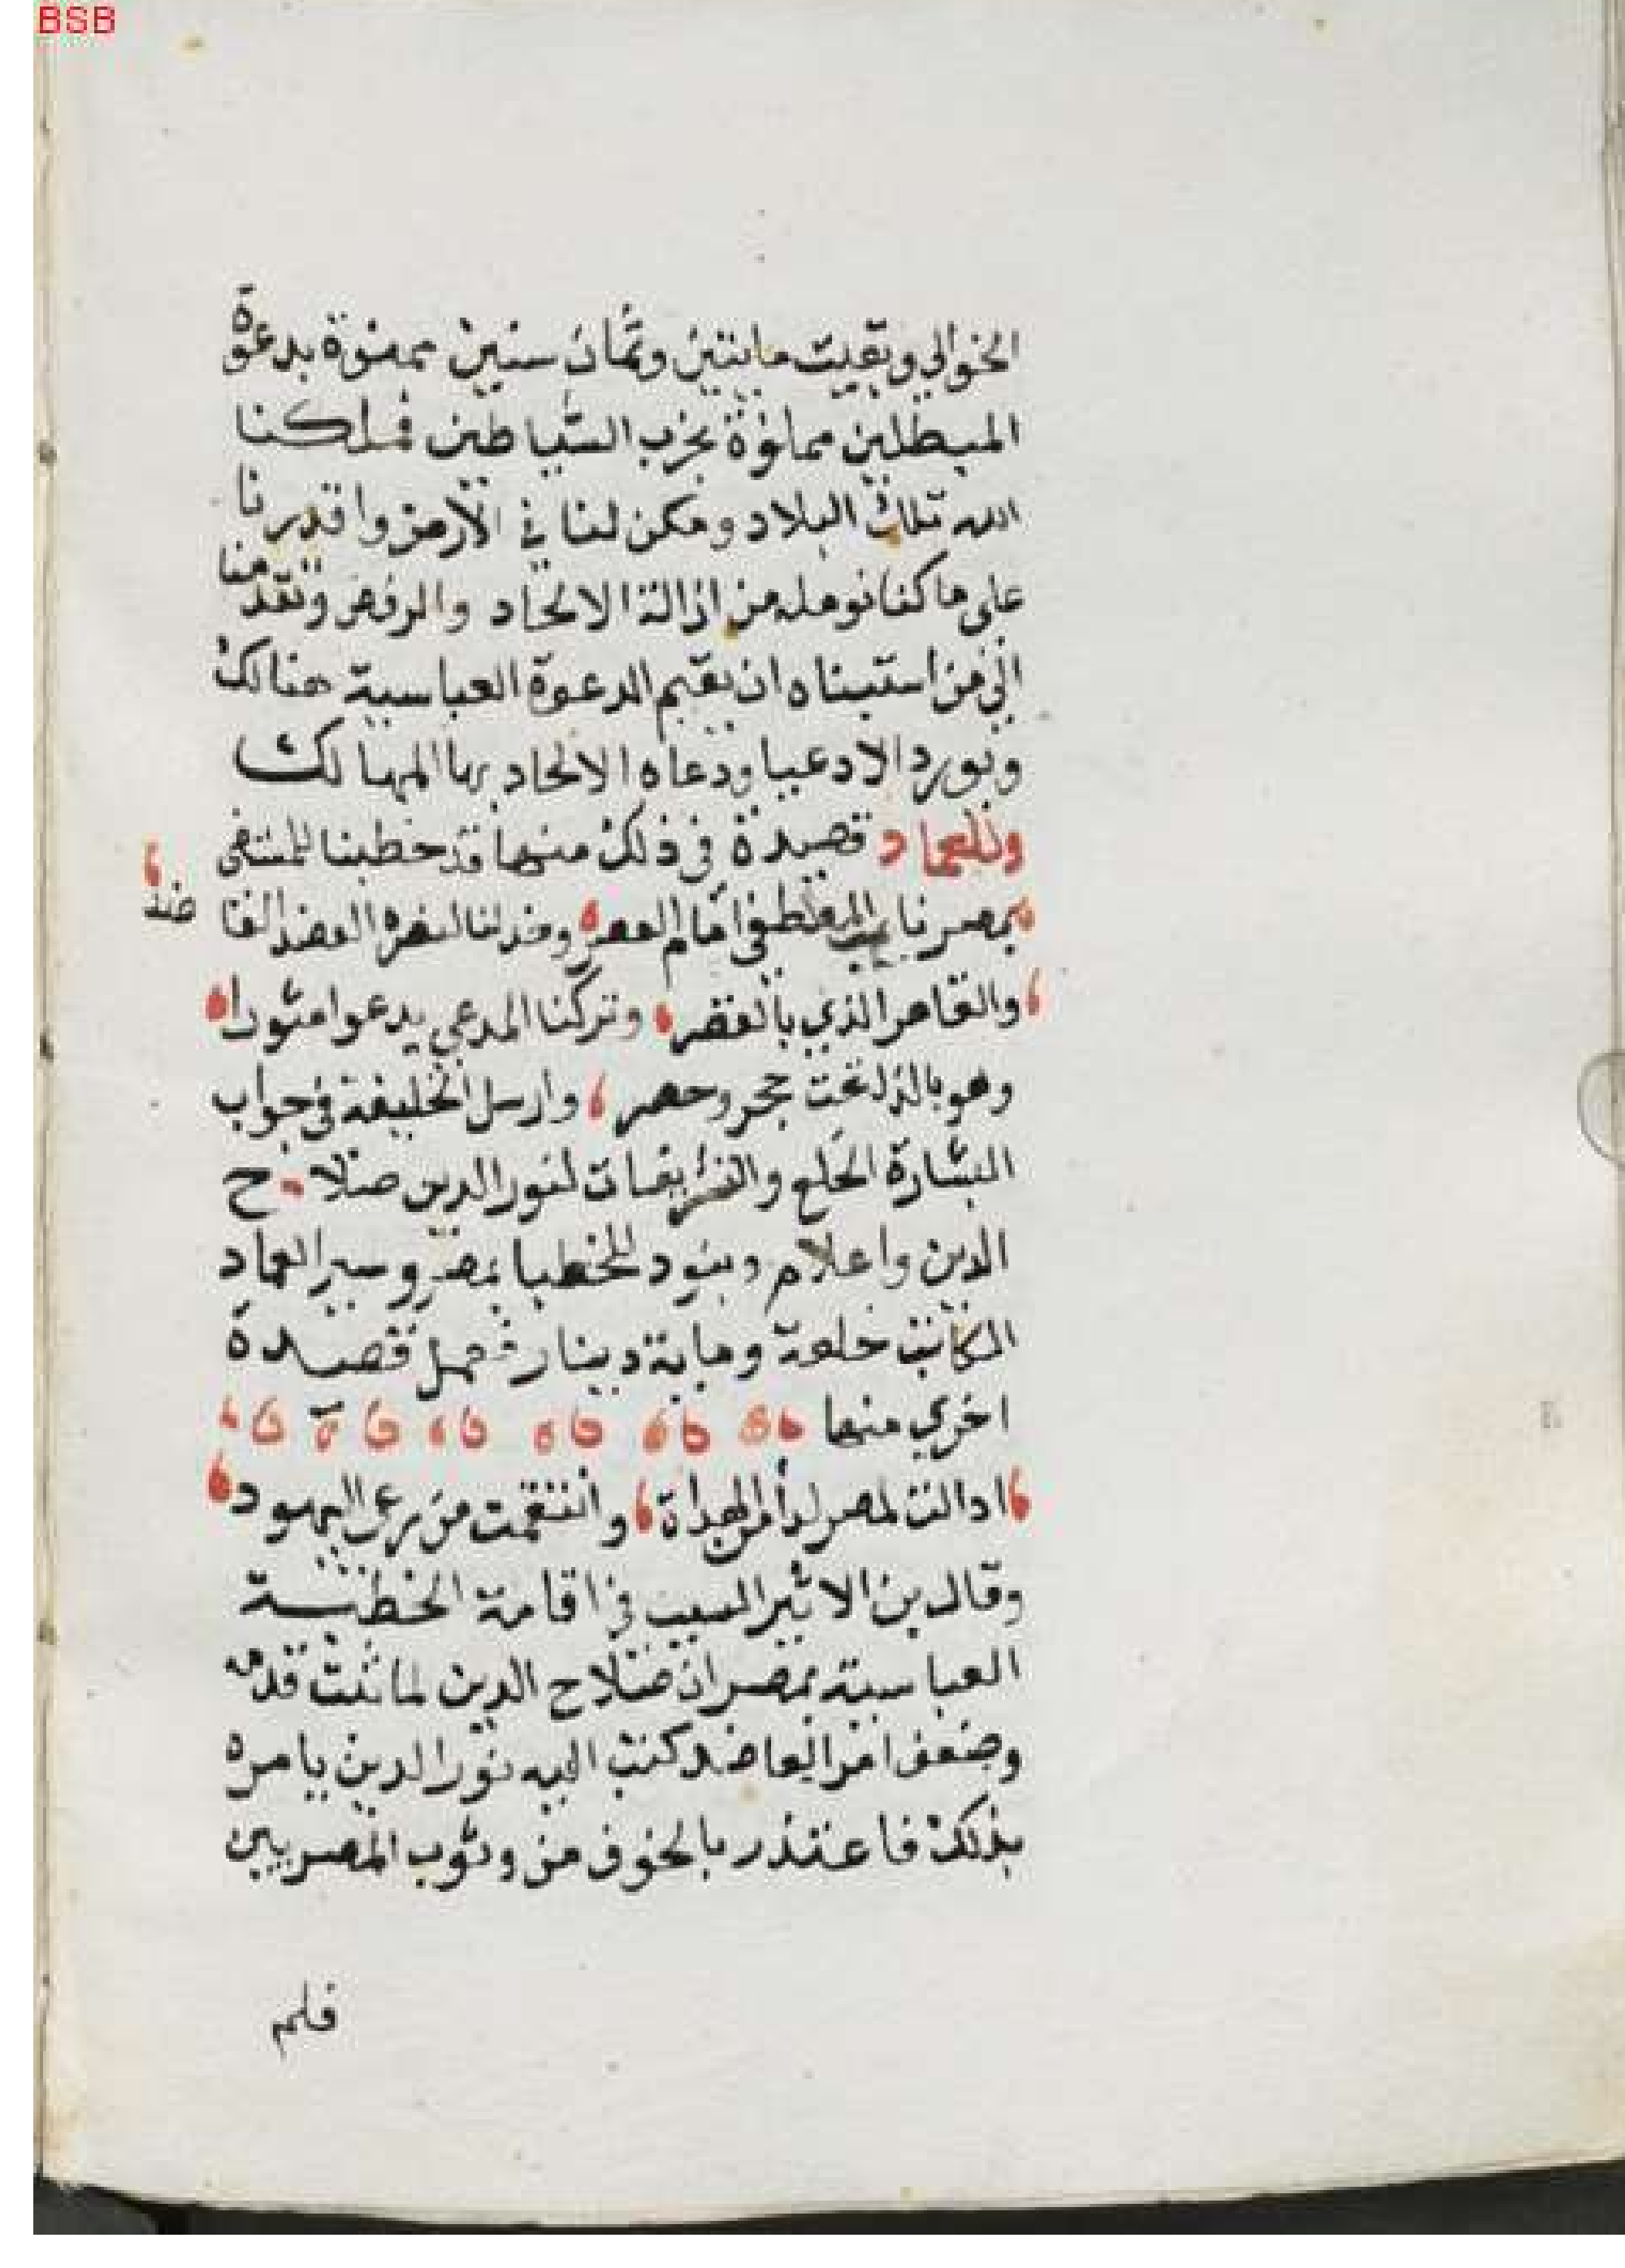 BSB
الخوالي وبقيت مايتين وثمان سنين ممنوة بدعوة
المبطلين مملوة بحزب الشياطين فملكنا
الله تلك البلاد ومكن لنا في الارض واقدرنا
على ما كنا نومله من ازالة الالحاد والرفض وتقدمنا
الي من استنبناه ان يقيم الدعوة العباسية هنالك
ويورد الادعيا ودعاه الالحاد بها المهالك
وللعماد قصيدة في ذلك منها قد خطبنا للمستضي
بمصر نايب المصطفى امام العصر وخذلنا لنصره العضد العا
ضد
والقاصر الذي بالقصر وتركنا المدعي يدعوا ثبورا
وهو بالذل تحت حجر وحصر وارسل الخليفة في جواب
البشارة الخلع والتشريفات لنور الدين صلاح
الدين واعلام وبنود للخطبا بمصر وسير العماد
الكاتب خلعة وماية دينار فعمل قصيدة
اخري منها
ادالت لمصر وانتقمت من اليهود
وقال بن الاثير السبب في اقامة الخطبة
العباسية بمصر ان صلاح الدين لما ثبت قدمه
وضعف امر العاضد كتب اليه نور الدين يامره
بذلك فاعتذر بالخوف من وثوب المصريين
فلم